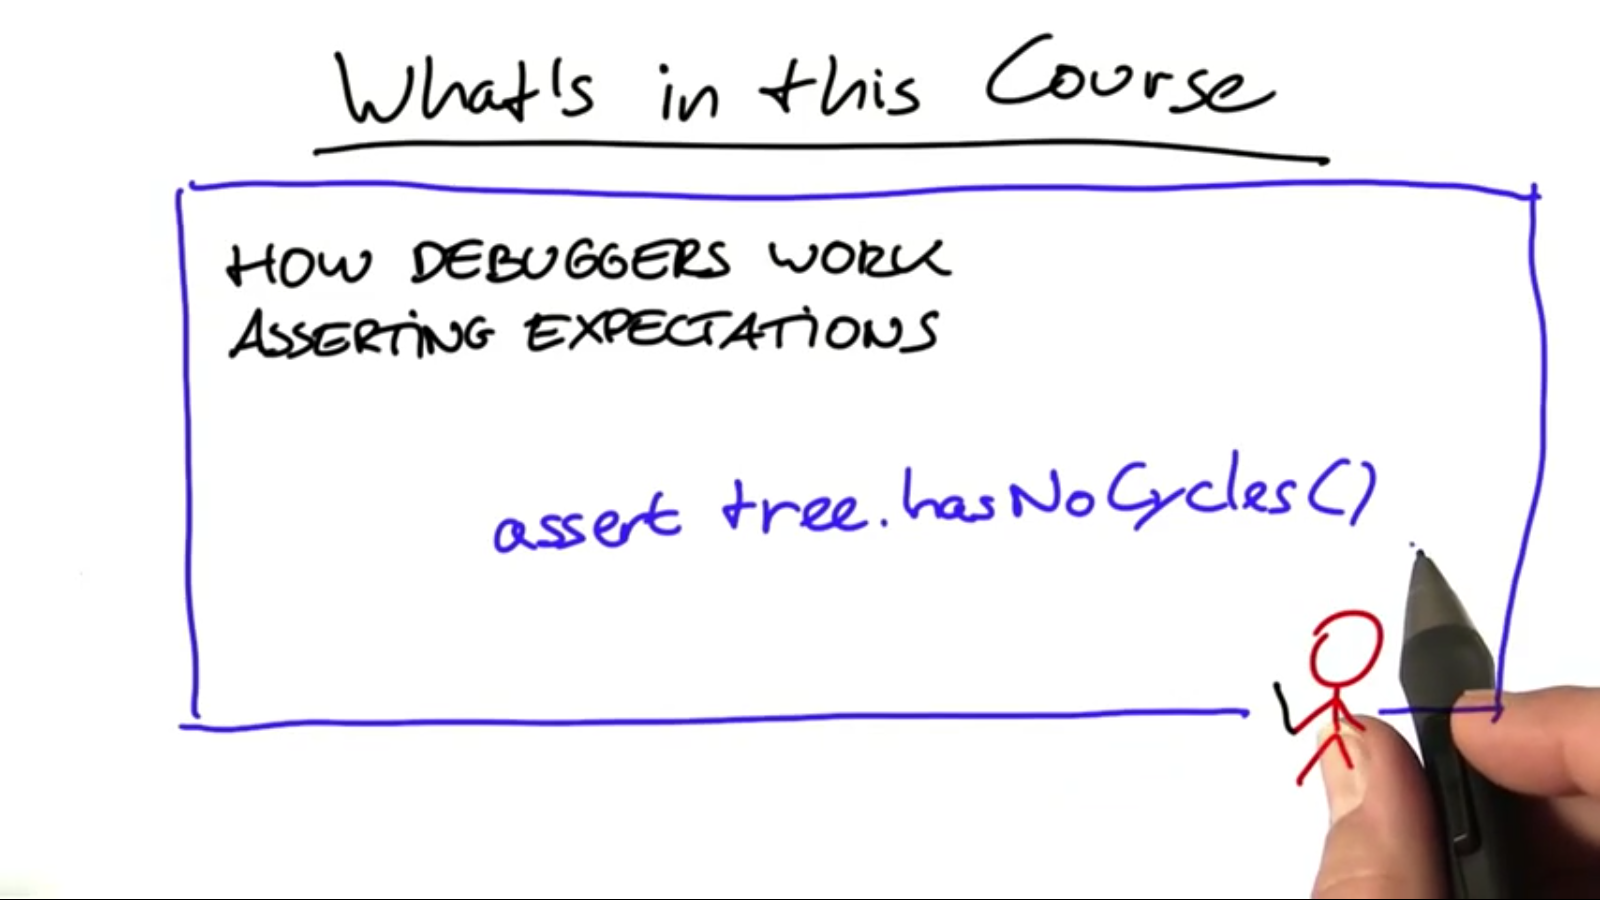 What's in this Course
HOW DEBUGGERS WORK
ASSERTING EXPECTATIONS
assert tree.hasNoCycles()